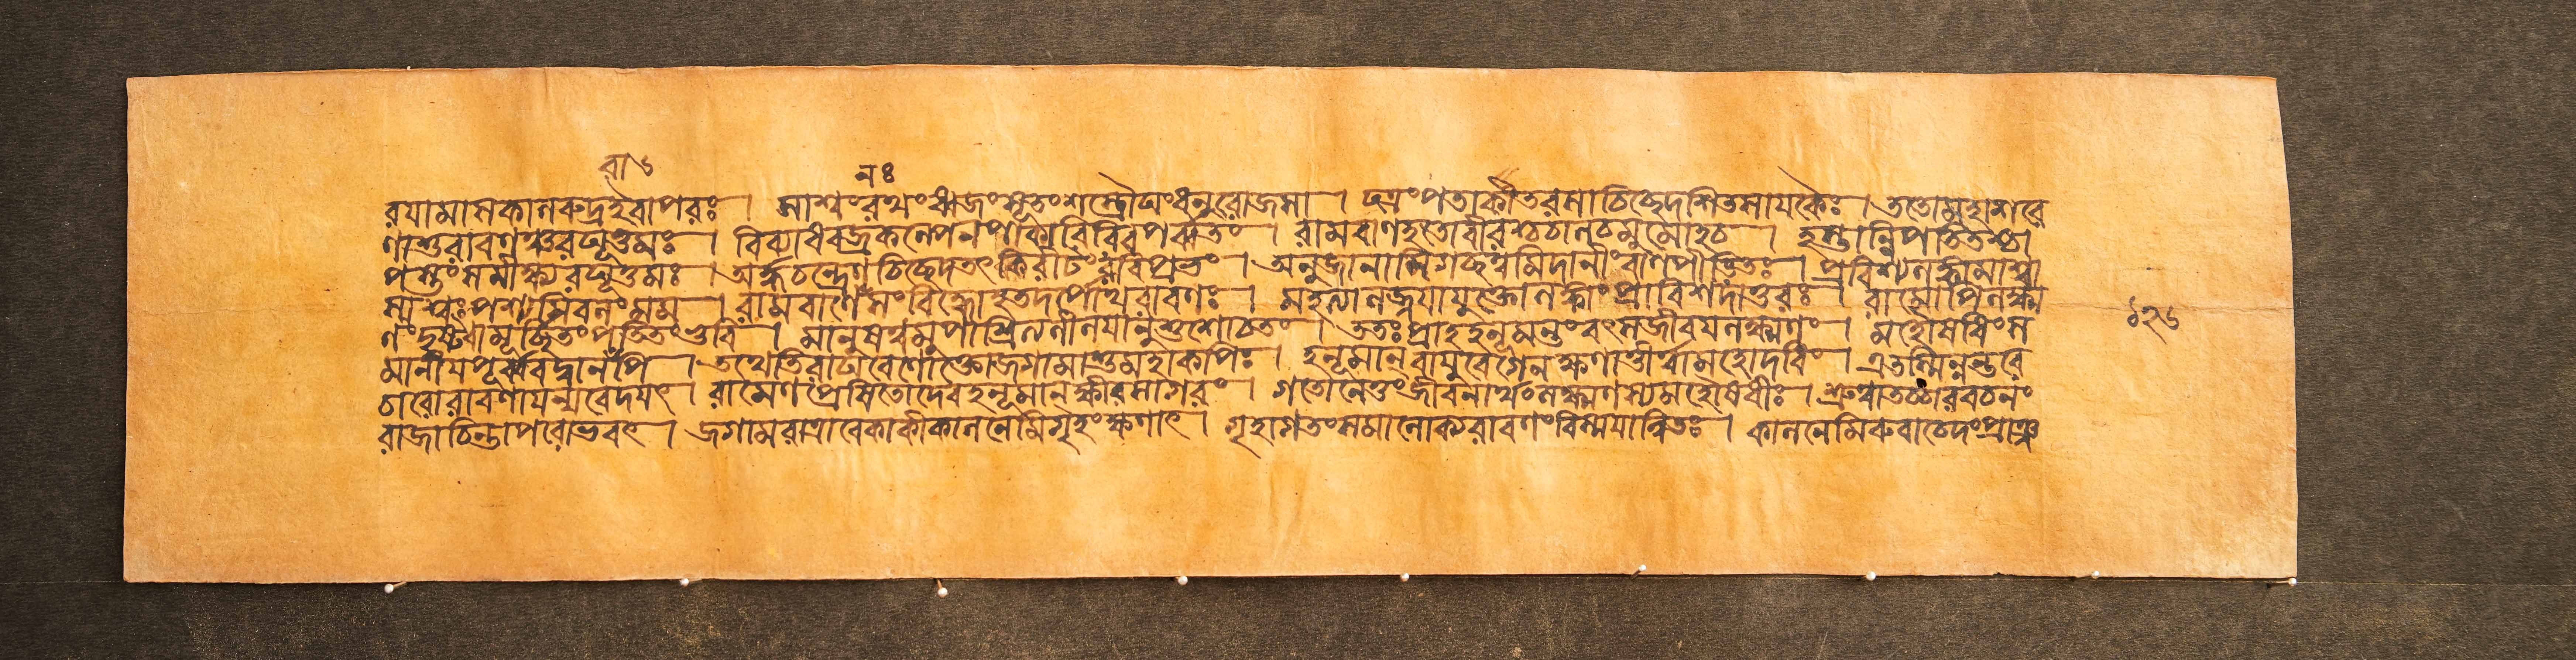 বা ৬
নঃ
রযামাসকালৰুদ্রইবাপরঃ । সাশ্বংরথংধ্বজংসূতংশস্ত্রৌঘংধনুরোজসা । ছত্রংপতাকাংতরসাচিচ্ছেদশিতসাযকৈঃ । ততোমহাশরে
ণাশুরাবণংরঘূত্তমঃ । বিব্যাধবজ্রকল্পেনপাকারিরিবপর্বতং । রামবাণহতোবীরশ্চচালচমুমোহচ । হস্তান্নিপতিতশ্চা
পস্তংসমীক্ষ্যরঘূত্তমঃ । অর্দ্ধচন্দ্রেণচিচ্ছেদতৎকিরীটংরবিপ্রভং । অনুজানামিগচ্ছত্বমিদানীংবাণপীডিতঃ । প্রবিশ্যলঙ্কামাশ্বা
স্যশ্বঃপশ্যসিবলংমম । রামবাণেনসংবিদ্ধোহতদর্পোথরাবণঃ । মহত্যালজ্জযাযুক্তোলঙ্কাংপ্রাবিশদাতুরঃ । রামোপিলক্ষ্ম
ণংদৃষ্ট্বামূর্চ্ছিতংপতিতংভুবি । মানুষত্বমুপাশ্রিত্যলীলযানুশুশোচতং । ততঃপ্রাহহনূমন্তংবৎসজীবযলক্ষ্মণং । মহৌষধিংস
মানীযপূর্ববদ্বানরানপি । তথেতিরাঘবেণোক্তোজগামাশুমহাকপিঃ । হনূমান্বাযুবেগেনক্ষণাত্তীর্ত্বামহোদধিং । এতস্মিন্নন্তরে
চারোরাবণাযন্যবেদযৎ । রামেণপ্রেষিতোদেবহনূমান্ক্ষীরসাগরং । গতোনেতুংজীবনার্থংলক্ষ্মণস্যমহৌষধীঃ । শ্রুত্বাতচ্চারবচনং
রাজাচিন্তাপরোভবৎ । জগামরাত্রাবেকাকীকালনেমিগৃহংক্ষণাৎ । গৃহাগতংসমালোক্যরাবণংবিস্মযান্বিতঃ । কালনেমিৰুবাচেদংপ্রাঞ্জ